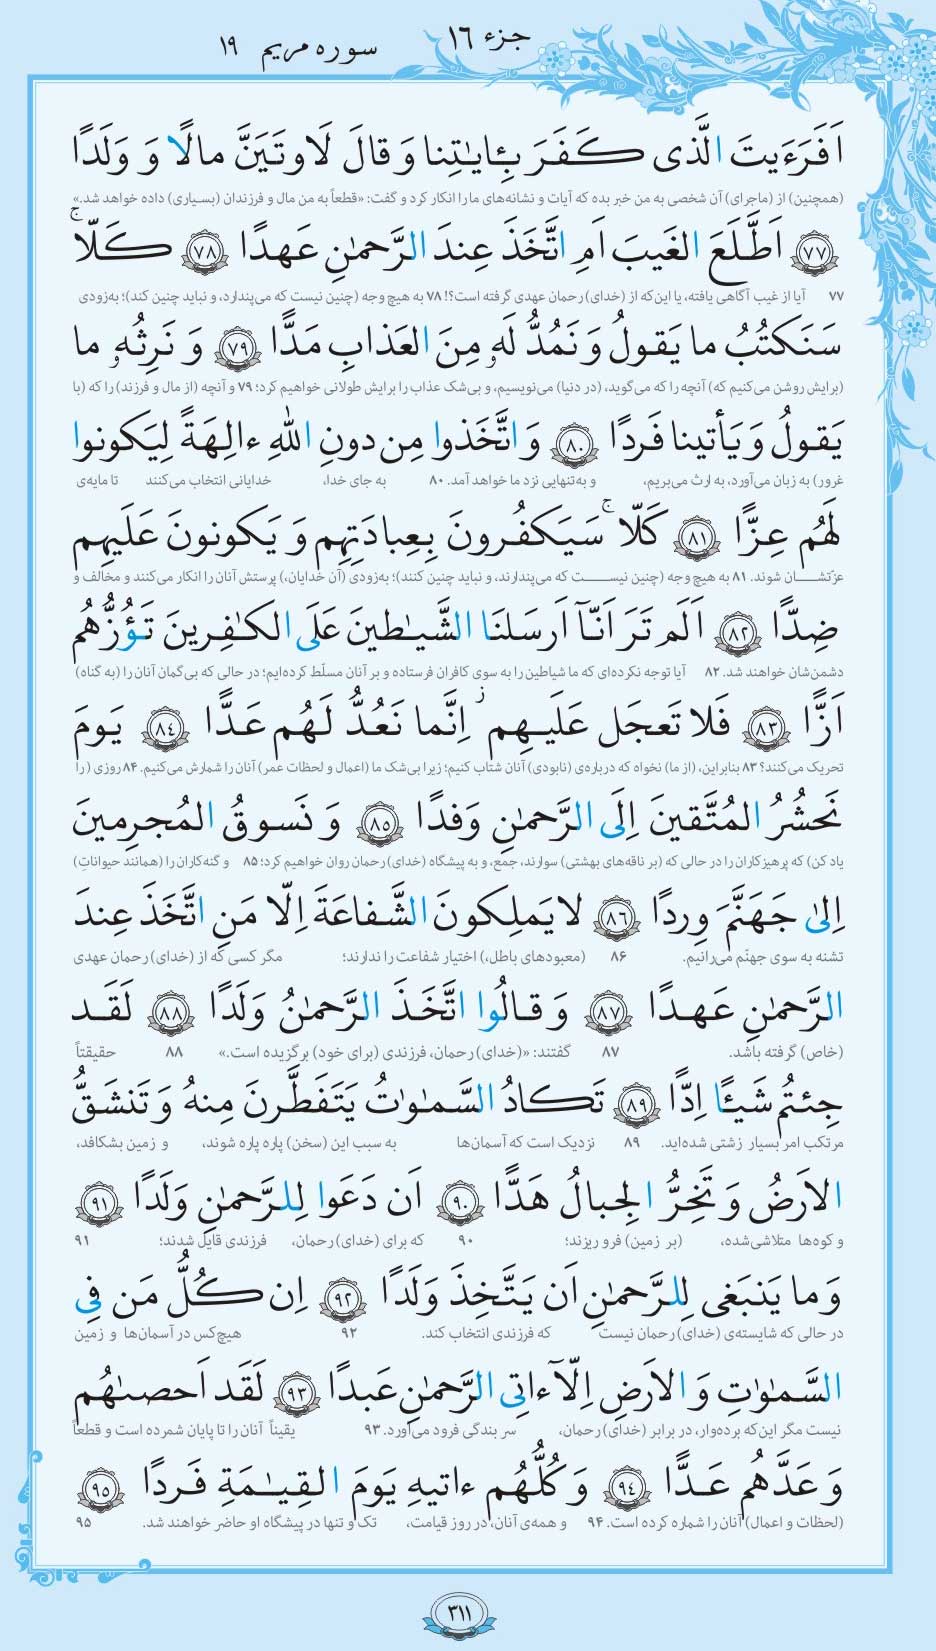 جزء ۱۶
سوره مریم ۱۹
اَفَرَءَیتَ الَّذی کَفَرَ بِـٔایـٰتِنا وَ قالَ لَاوتَیَنَّ مالًا وَ وَلَدًا
(همچنین) از (ماجرای) آن شخصی به من خبر بده که آیات و نشانه‌های ما را انکار کرد و گفت: «قطعاً به من مال و فرزندان (بسیاری) داده خواهد شد.»
﴿۷۷﴾ اَطَّلَعَ الغَیبَ اَمِ اتَّخَذَ عِندَ الرَّحمـٰنِ عَهدًا ﴿۷۸﴾ کَلّاۚ
۷۷ آیا از غیب آگاهی یافته، یا این‌که از (خدای) رحمان عهدی گرفته است؟! ۷۸ به هیچ وجه (چنین نیست که می‌پندارد، و نباید چنین کند)؛ به‌زودی
سَنَکتُبُ ما یَقولُ وَ نَمُدُّ لَهٗ مِنَ العَذابِ مَدًّا ﴿۷۹﴾ وَ نَرِثُهٗ ما
(برایش روشن می‌کنیم که) آنچه را که می‌گوید، (در دنیا) می‌نویسیم، و بی‌شک عذاب را برایش طولانی خواهیم کرد؛ ۷۹ و آنچه (از مال و فرزند) را که (با
یَقولُ وَ یَأتینا فَردًا ﴿۸۰﴾ وَ اتَّخَذوا مِن دونِ اللّٰهِ ءالِهَةً لِیَکونوا
غرور) به زبان می‌آورد، به ارث می‌بریم، و به‌تنهایی نزد ما خواهد آمد. ۸۰ به جای خدا، خدایانی انتخاب می‌کنند تا مایه‌ی
لَهُم عِزًّا ﴿۸۱﴾ کَلّاۚ سَیَکفُرونَ بِعِبادَتِهِم وَ یَکونونَ عَلَیهِم
عزّتشــان شوند. ۸۱ به هیچ وجه (چنین نیســت که می‌پندارند، و نباید چنین کنند)؛ به‌زودی (آن خدایان،) پرستش آنان را انکار می‌کنند و مخالف و
ضِدًّا ﴿۸۲﴾ اَلَم تَرَ اَنّآ اَرسَلنَا الشَّیـٰطینَ عَلَی الکـٰفِرینَ تَؤُزُّهُم
دشمن‌شان خواهند شد. ۸۲ آیا توجه نکرده‌ای که ما شیاطین را به سوی کافران فرستاده و بر آنان مسلّط کرده‌ایم؛ در حالی که بی‌گمان آنان را (به گناه)
اَزًّا ﴿۸۳﴾ فَلا تَعجَل عَلَیهِمۖ اِنَّما نَعُدُّ لَهُم عَدًّا ﴿۸۴﴾ یَومَ
تحریک می‌کنند؟ ۸۳ بنابراین، (از ما) نخواه که درباره‌ی (نابودی) آنان شتاب کنیم؛ زیرا بی‌شک ما (اعمال و لحظات عمر) آنان را شمارش می‌کنیم. ۸۴ روزی (را
نَحشُرُ المُتَّقینَ اِلَی الرَّحمـٰنِ وَفدًا ﴿۸۵﴾ وَ نَسوقُ المُجرِمینَ
یاد کن) که پرهیزکاران را در حالی که (بر ناقه‌های بهشتی) سوارند، جمع، و به پیشگاه (خدای) رحمان روان خواهیم کرد؛ ۸۵ و گنه‌کاران را (همانند حیواناتِ)
اِلیٰ جَهَنَّمَ وِردًا ﴿۸۶﴾ لا یَملِکونَ الشَّفاعَةَ اِلّا مَنِ اتَّخَذَ عِندَ
تشنه به سوی جهنّم می‌رانیم. ۸۶ (معبودهای باطل،) اختیار شفاعت را ندارند؛ مگر کسی که از (خدای) رحمان عهدی
الرَّحمـٰنِ عَهدًا ﴿۸۷﴾ وَ قالُوا اتَّخَذَ الرَّحمـٰنُ وَلَدًا ﴿۸۸﴾ لَقَد
(خاص) گرفته باشد. ۸۷ گفتند: «(خدای) رحمان، فرزندی (برای خود) برگزیده است.» ۸۸ حقیقتاً
جِئتُم شَیـًٔا اِدًّا ﴿۸۹﴾ تَکادُ السَّمـٰوٰتُ یَتَفَطَّرنَ مِنهُ وَ تَنشَقُّ
مرتکب امر بسیار زشتی شده‌اید. ۸۹ نزدیک است که آسمان‌ها به سبب این (سخن) پاره پاره شوند، و زمین بشکافد،
الاَرضُ وَ تَخِرُّ الجِبالُ هَدًّا ﴿۹۰﴾ اَن دَعَوا لِلرَّحمـٰنِ وَلَدًا ﴿۹۱﴾
و کوه‌ها متلاشی‌شده، (بر زمین) فرو ریزند؛ ۹۰ که برای (خدای) رحمان، فرزندی قایل شدند؛ ۹۱
وَ ما یَنبَغی لِلرَّحمـٰنِ اَن یَتَّخِذَ وَلَدًا ﴿۹۲﴾ اِن کُلُّ مَن فِی
در حالی که شایسته‌ی (خدای) رحمان نیست که فرزندی انتخاب کند. ۹۲ هیچ‌کس در آسمان‌ها و زمین
السَّمـٰوٰتِ وَ الاَرضِ اِلّآ ءاتِی الرَّحمـٰنِ عَبدًا ﴿۹۳﴾ لَقَد اَحصىٰهُم
نیست مگر این‌که برده‌وار، در برابر (خدای) رحمان، سر بندگی فرود می‌آورد. ۹۳ یقیناً آنان را تا پایان شمرده است و قطعاً
وَ عَدَّهُم عَدًّا ﴿۹۴﴾ وَ کُلُّهُم ءاتیهِ یَومَ القِیـٰمَةِ فَردًا ﴿۹۵﴾
(لحظات و اعمال) آنان را شماره کرده است. ۹۴ و همه‌ی آنان، در روز قیامت، تک و تنها در پیشگاه او حاضر خواهند شد. ۹۵
۳۱۱